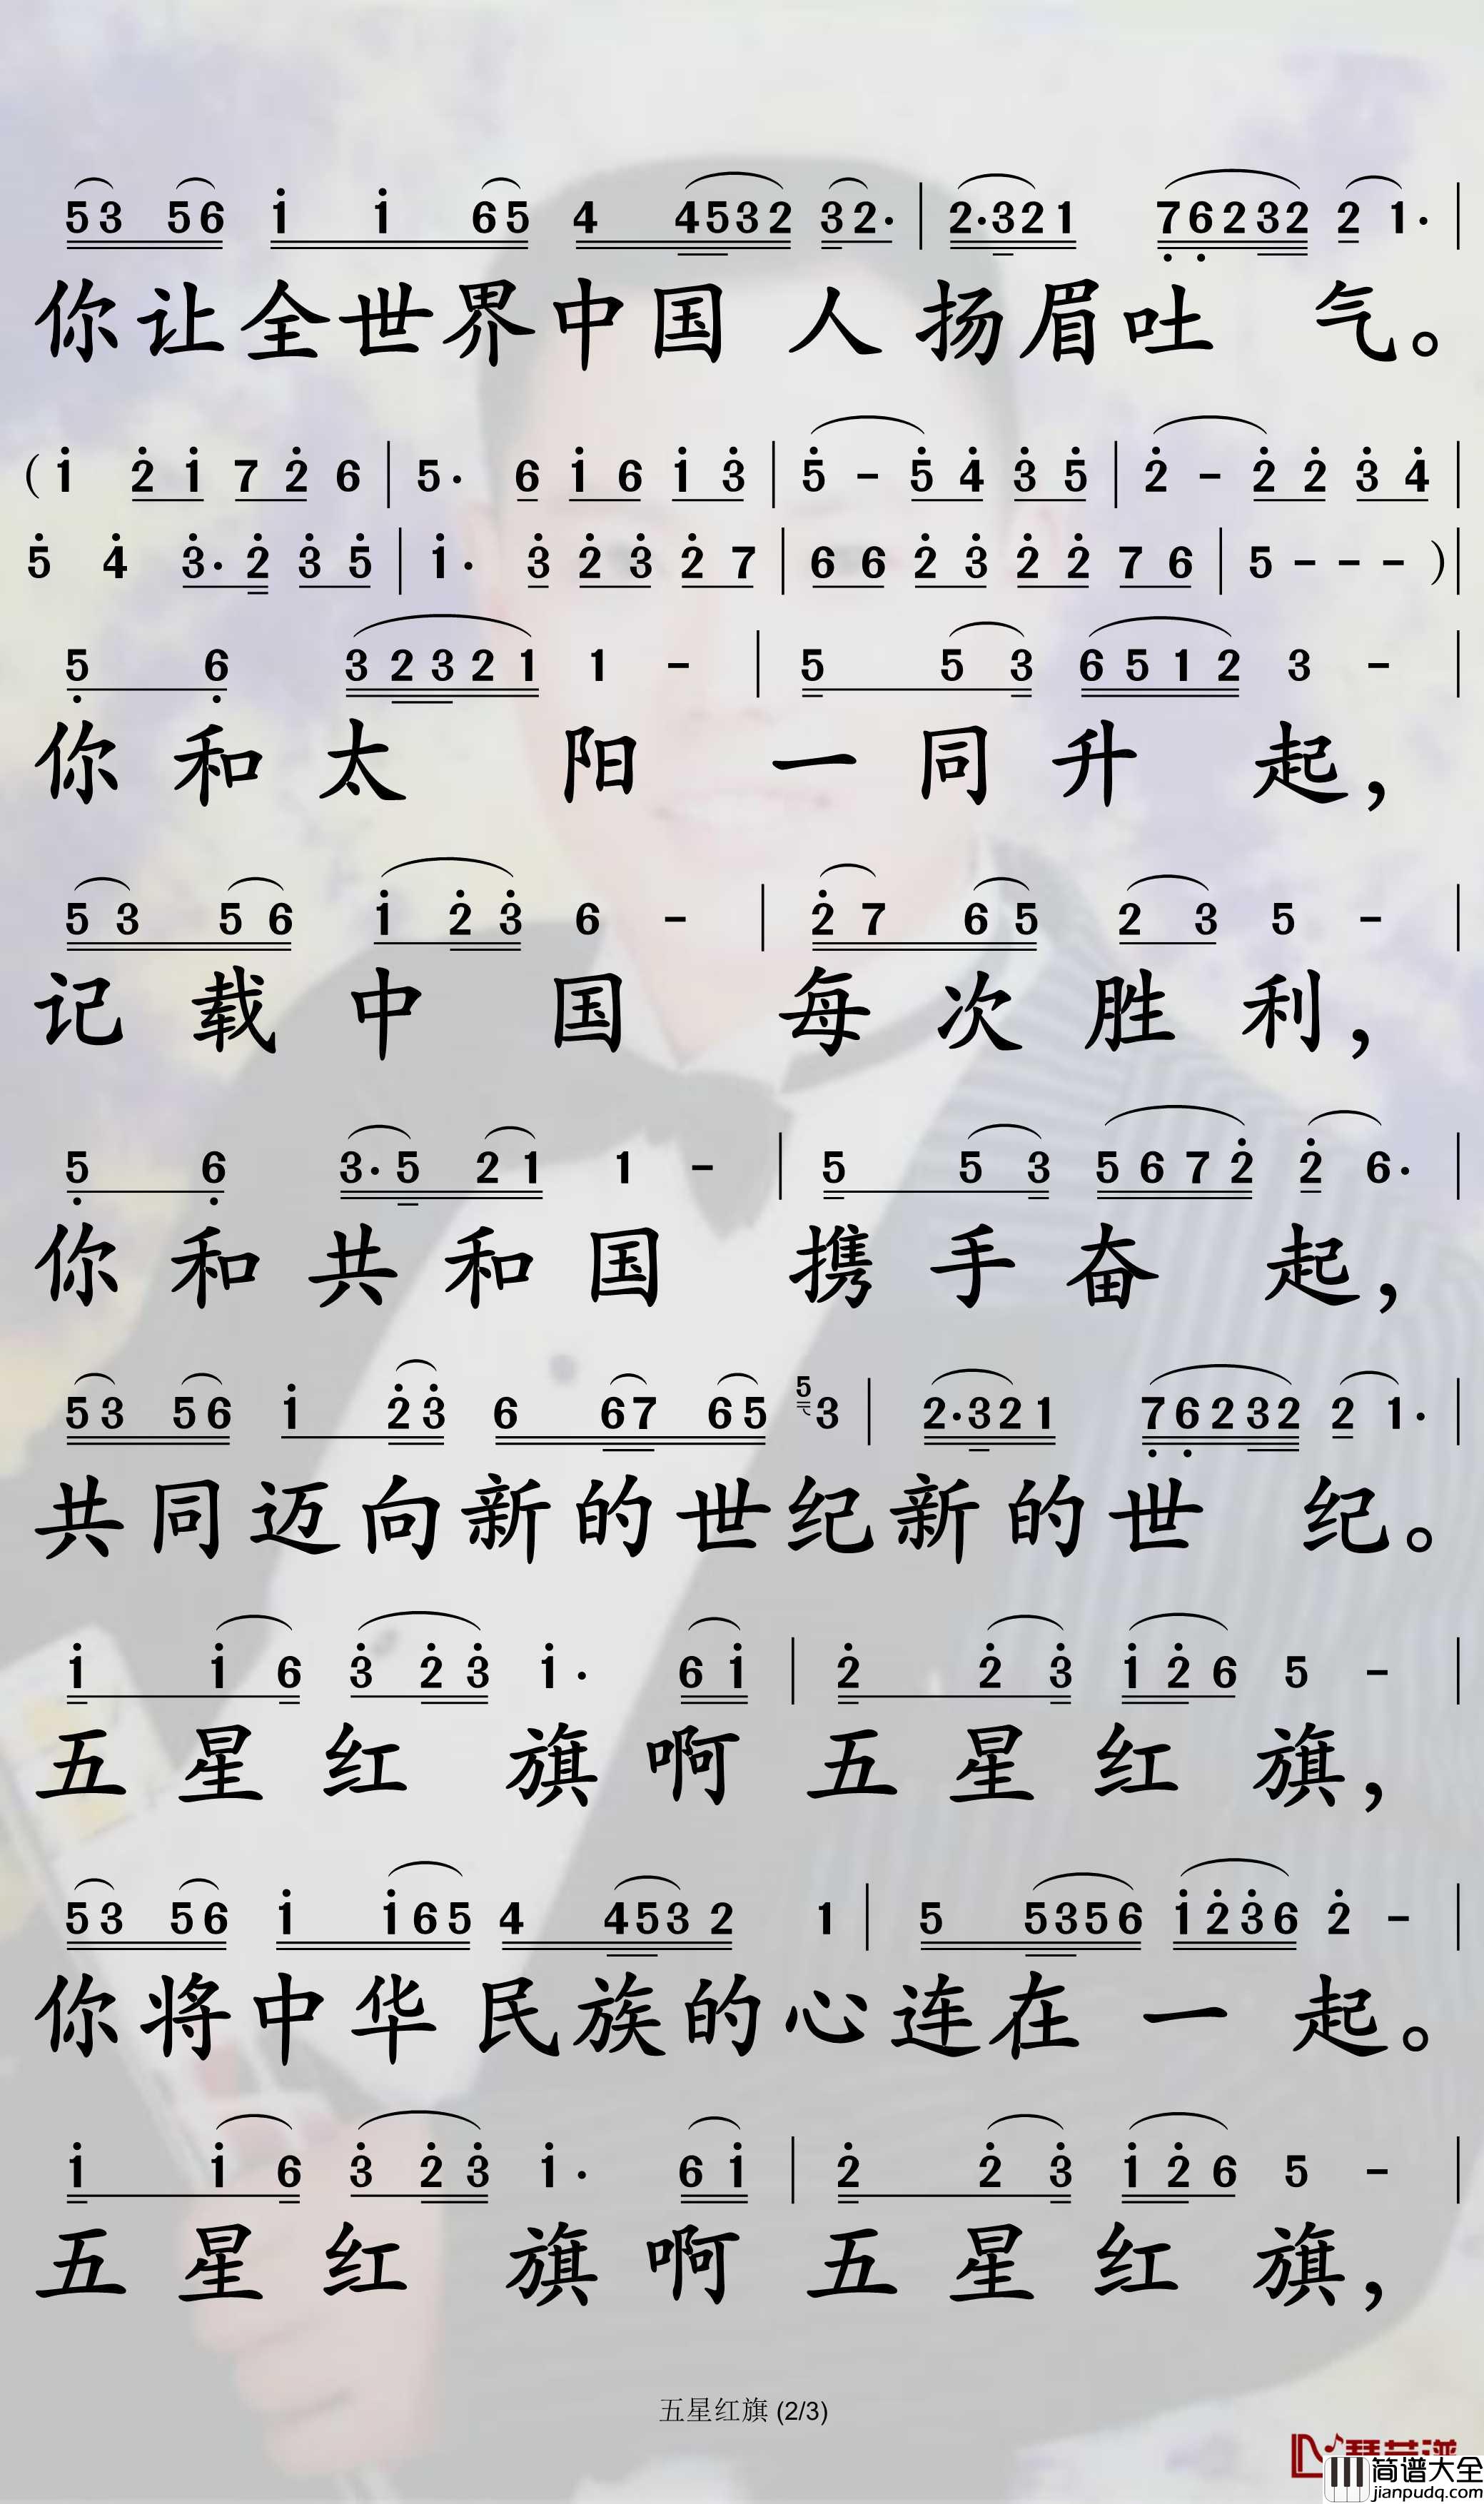 53 56 1 1 65 4 4532 32· | 2·321 76232 2 1· |
你让全世界中国 人扬眉吐 气。
( 1 2 1 7 2 6 | 5· 6 1 6 1 3 | 5 - 5 4 3 5 | 2 - 2 2 3 4 |
5 4 3· 2 3 5 | 1· 3 2 3 2 7 | 6 6 2 3 2 2 7 6 | 5 - - - ) |
5 6 3 2 3 2 1 1 - | 5 5 3 6 5 1 2 3 - |
你和太 阳 一同升 起,
5 3 5 6 1 2 3 6 - | 2 7 6 5 2 3 5 - |
记载中 国 每次胜利,
5 6 3· 5 2 1 1 - | 5 5 3 5 6 7 2 2 6· |
你和共和国 携手奋 起,
53 56 1 23 6 67 65 5 3 | 2·321 76232 2 1· |
共同迈向新的世纪新的世 纪。
1 1 6 3 2 3 1· 6 1 | 2 2 3 1 2 6 5 - |
五星红 旗啊 五星红 旗,
53 56 1 165 4 453 2 1 | 5 5356 1236 2 - |
你将中华民族的心连在一 起。
1 1 6 3 2 3 1· 6 1 | 2 2 3 1 2 6 5 - |
五星红 旗啊 五星红 旗,
五星红旗 (2/3)
简谱大全
jianpudq.com